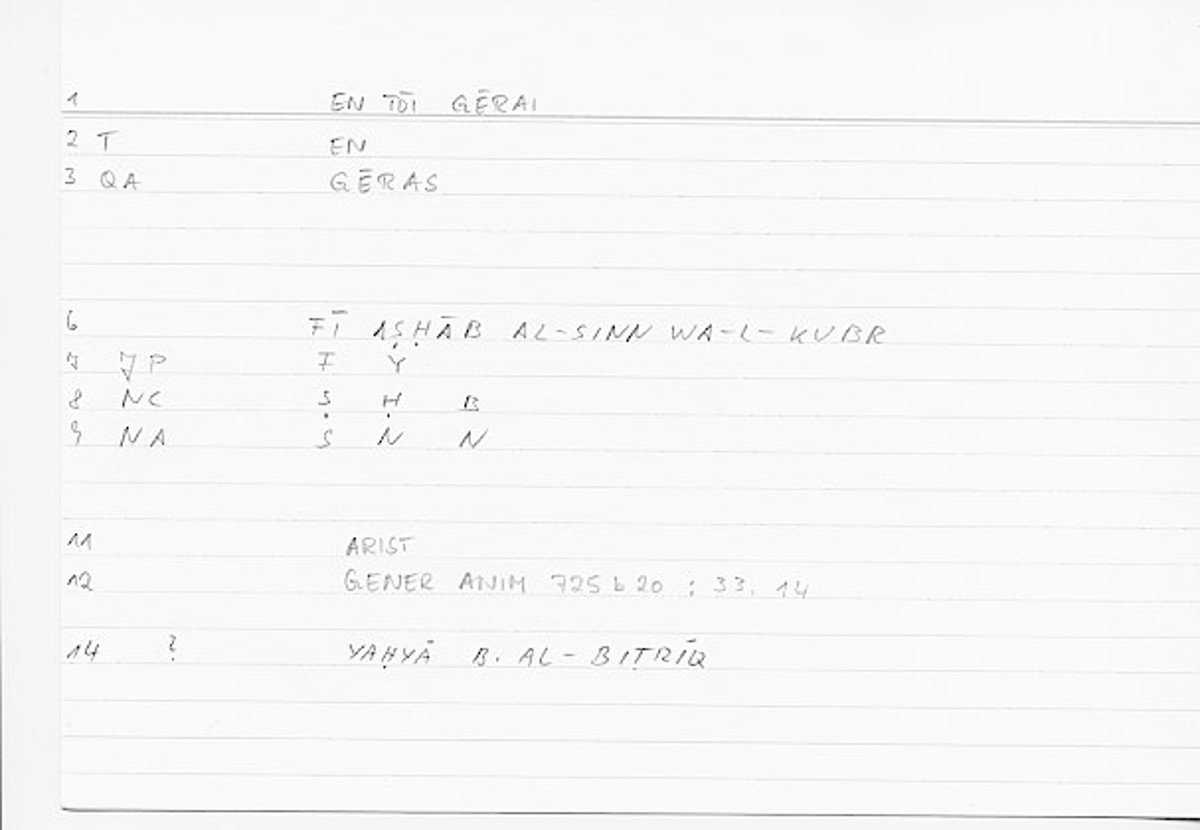 1 EN TŌI GĒRAI
2 T EN
3 QA GĒRAS
6 FĪ AṢḤĀB AL-SINN WA-L-KUBR
7 JP F Y
8 NC Ṣ Ḥ B
9 NA S N N
11 ARIST
12 GENER ANIM 725 b 20 : 33. 14
14 ? YAḤYĀ B. AL-BIṬRĪQ